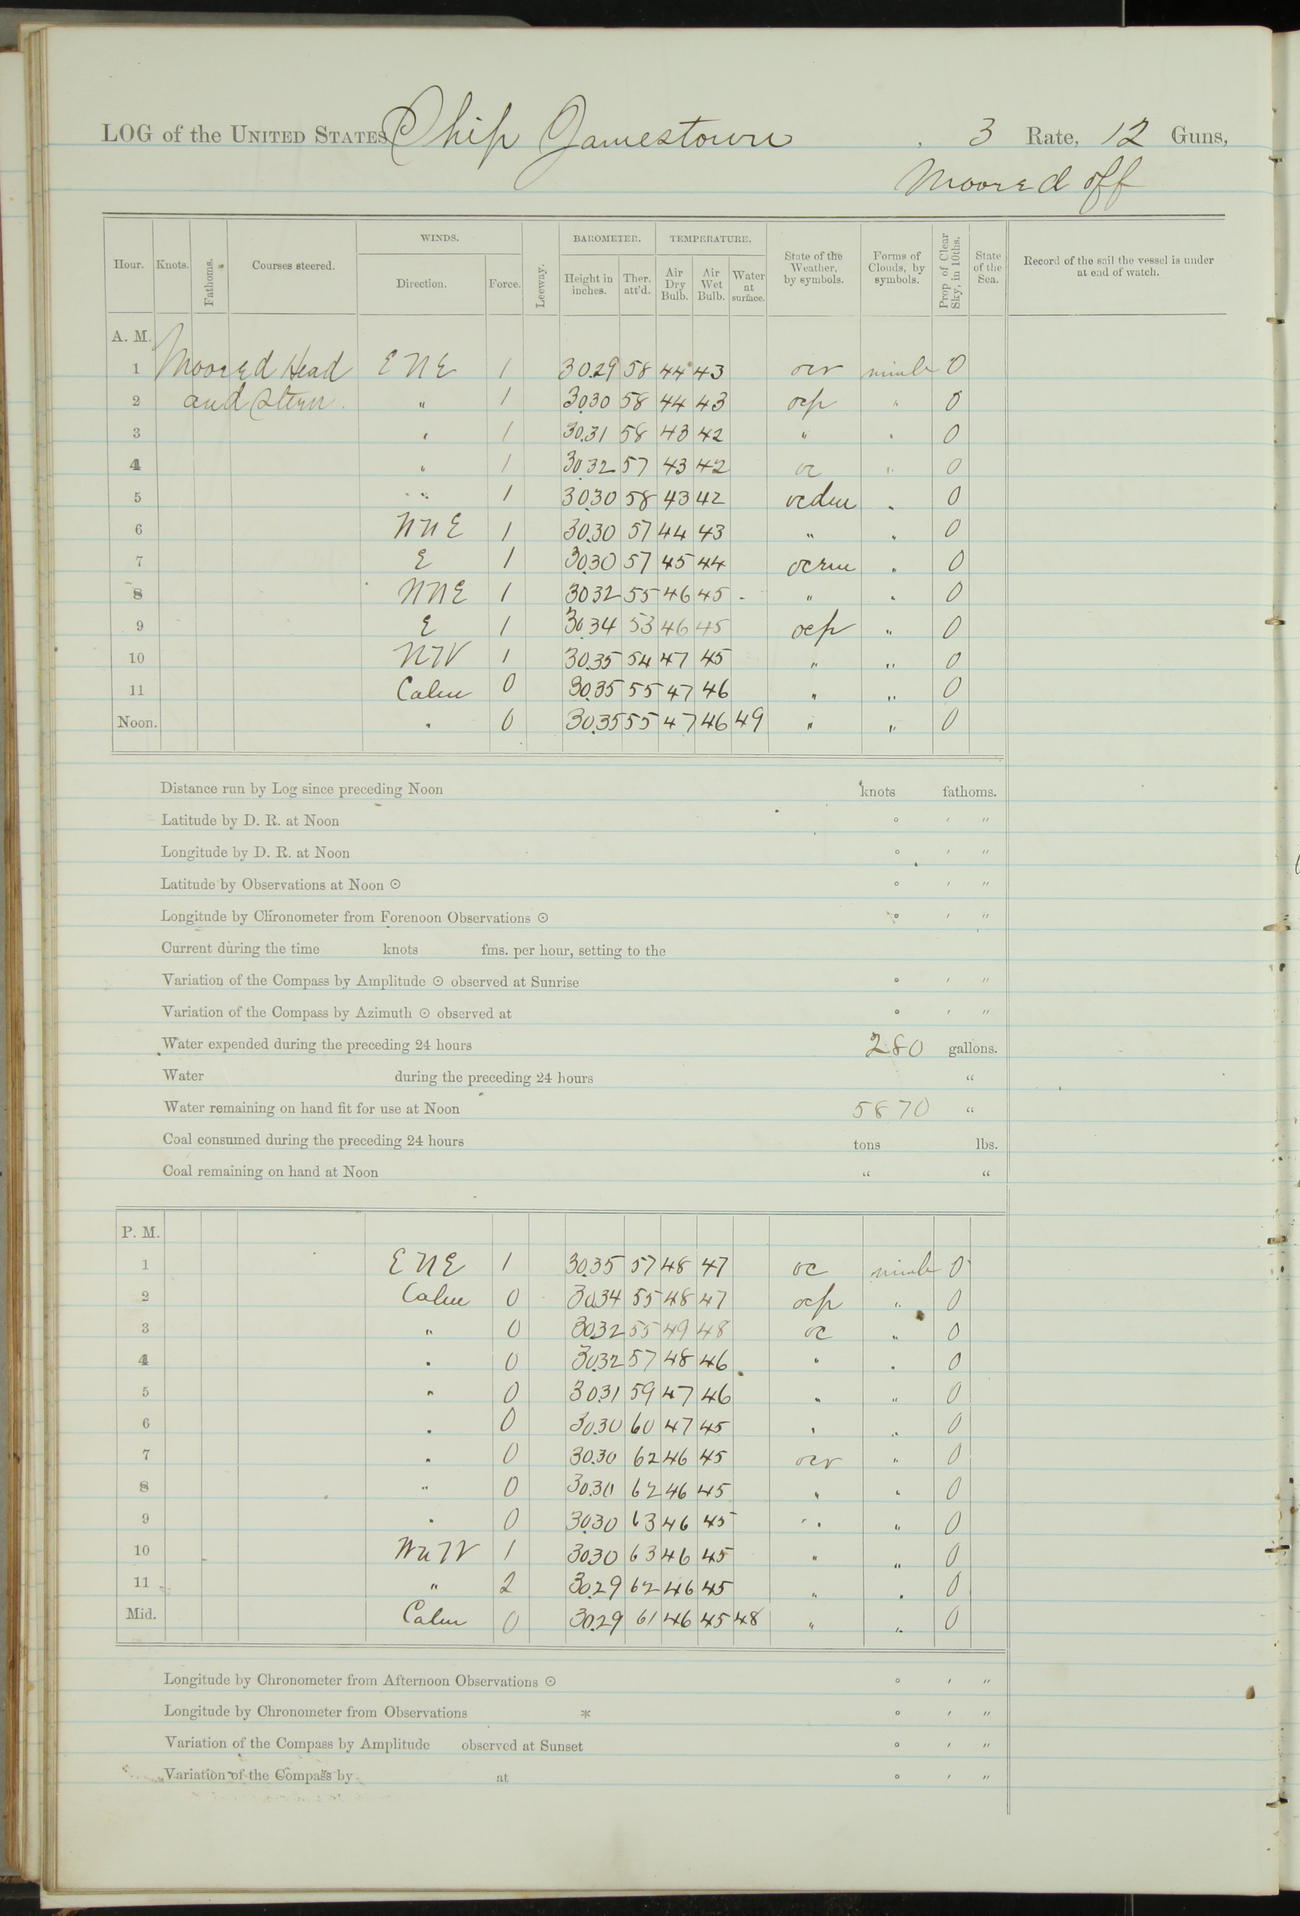 LOG of the UNITED STATES Ship Jamestown . 3 Rate, 12 Guns,
Moored off
Hour. Knots. Fathoms. Courses steered. WINDS. Direction. Force. Leeway. BAROMETER. Height in inches. Ther. att'd. TEMPERATURE. Air Dry Bulb. Air Wet Bulb. Water at surface. State of the Weather, by symbols. Forms of Clouds, by symbols. Prop of Clear Sky, in 10ths. State of the Sea. Record of the sail the vessel is under at end of watch.
A. M.
1 Moored Head ENE 1 30.29 58 44 43 ocr nimb 0
2 and Stern. " 1 30.30 58 44 43 ocp " 0
3 " 1 30.31 58 43 42 " " 0
4 " 1 30.32 57 43 42 oc " 0
5 " 1 30.30 58 43 42 ocdm " 0
6 NNE 1 30.30 57 44 43 " " 0
7 E 1 30.30 57 45 44 ocrm " 0
8 NNE 1 30.32 55 46 45 " " 0
9 E 1 30.34 53 46 45 ocp " 0
10 NW 1 30.35 54 47 45 " " 0
11 Calm 0 30.35 55 47 46 " " 0
Noon. " 0 30.35 55 47 46 49 " " 0
Distance run by Log since preceding Noon knots fathoms.
Latitude by D. R. at Noon ° ′ ″
Longitude by D. R. at Noon ° ′ ″
Latitude by Observations at Noon ☉ ° ′ ″
Longitude by Chronometer from Forenoon Observations ☉ ° ′ ″
Current during the time knots fms. per hour, setting to the
Variation of the Compass by Amplitude ☉ observed at Sunrise ° ′ ″
Variation of the Compass by Azimuth ☉ observed at ° ′ ″
Water expended during the preceding 24 hours 280 gallons.
Water during the preceding 24 hours "
Water remaining on hand fit for use at Noon 5870 "
Coal consumed during the preceding 24 hours tons lbs.
Coal remaining on hand at Noon " "
P. M.
1 ENE 1 30.35 57 48 47 oc nimb 0
2 Calm 0 30.34 55 48 47 ocp " 0
3 " 0 30.32 55 49 48 oc " 0
4 " 0 30.32 57 48 46 " " 0
5 " 0 30.31 59 47 46 " " 0
6 " 0 30.30 60 47 45 " " 0
7 " 0 30.30 62 46 45 ocr " 0
8 " 0 30.30 62 46 45 " " 0
9 " 0 30.30 63 46 45 " " 0
10 WNW 1 30.30 63 46 45 " " 0
11 " 2 30.29 62 46 45 " " 0
Mid. Calm 0 30.29 61 46 45 48 " " 0
Longitude by Chronometer from Afternoon Observations ☉ ° ′ ″
Longitude by Chronometer from Observations * ° ′ ″
Variation of the Compass by Amplitude observed at Sunset ° ′ ″
Variation of the Compass by at ° ′ ″